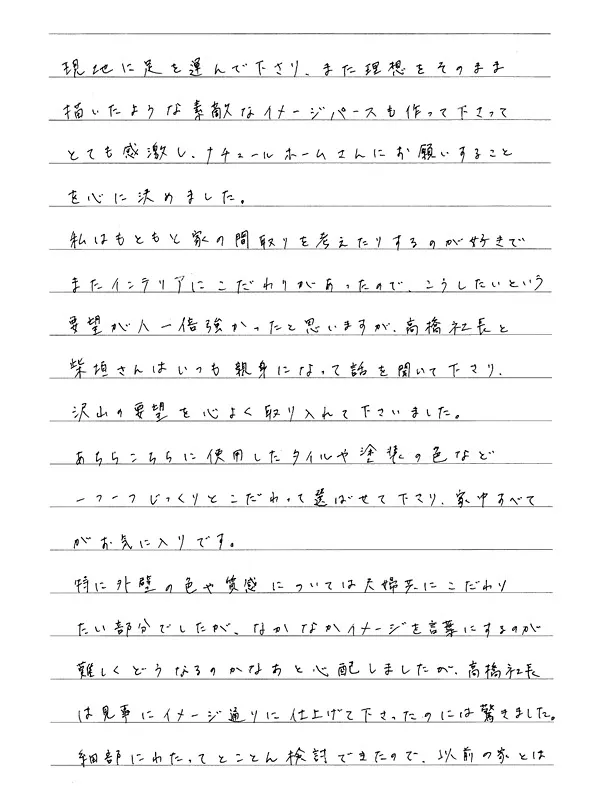 現地に足を運んで下さり、また理想をそのまま
描いたような素敵なイメージパースも作って下さって
とても感激し、ナチュールホームさんにお願いすること
を心に決めました。
私はもともと家の間取りを考えたりするのが好きで
またインテリアにこだわりがあったので、こうしたいという
要望が人一倍強かったと思いますが、高橋社長と
柴垣さんはいつも親身になって話を聞いて下さり、
沢山の要望を心よく取り入れて下さいました。
あちらこちらに使用したタイルや塗装の色など
一つ一つじっくりとこだわって選ばせて下さり、家中すべて
がお気に入りです。
特に外壁の色や質感については夫婦共にこだわり
たい部分でしたが、なかなかイメージを言葉にするのが
難しくどうなるのかなあと心配しましたが、高橋社長
は見事にイメージ通りに仕上げて下さったのには驚きました。
細部にわたってとことん検討できたので、以前の家とは